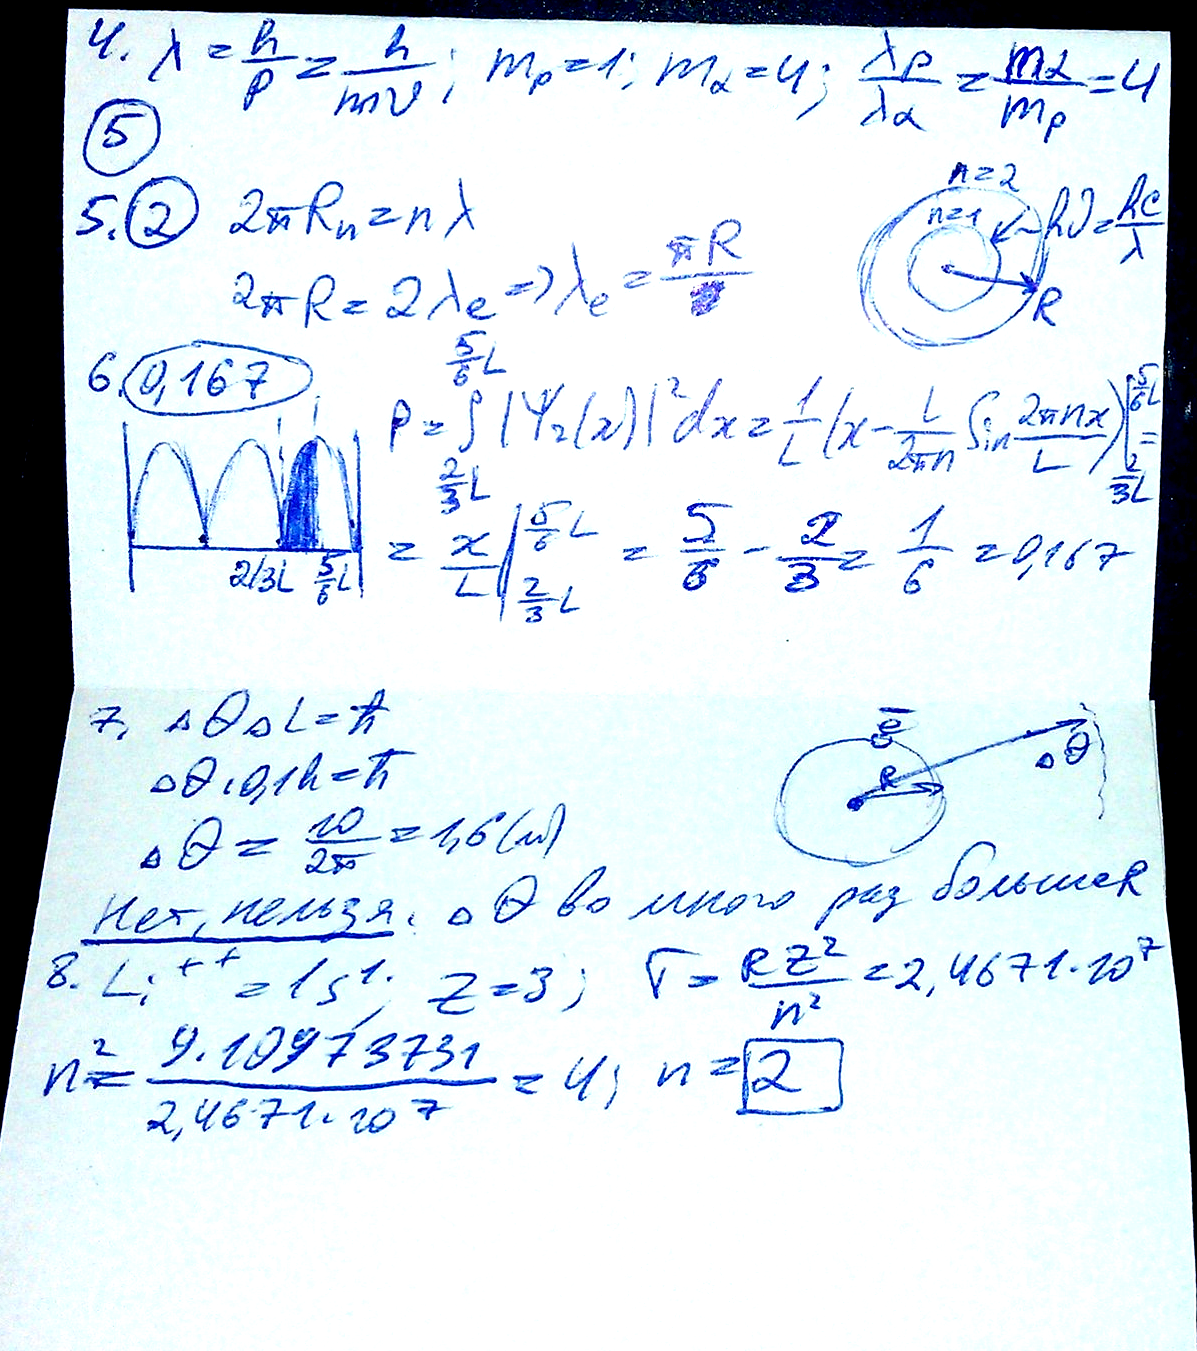 4. λ = h/p = h/mv; mp = 1; mα = 4; λp/λα = mα/mp = 4
5
5. 2 2πRn = nλ
n=2
n=1
hν = hc/λ
2πR = 2λe => λe = πR/
R
6. 0,167
P = ∫ 2/3L 5/6L |Ψ2(x)|² dx = 1/L (x - L/2πn Sin 2πnx/L) | 5/6L 2/3L =
= x/L | 5/6L 2/3L = 5/6 - 2/3 = 1/6 = 0,167
2/3L 5/6L
7. △θ△L = ħ
△θ·0,1h = ħ
△θ = 10/2π = 1,6 (м)
e̅
R
△θ
Нет, нельзя. △θ во много раз больше R
8. Li++ = 1s¹; Z = 3; T = RZ²/n² = 2,4671·10⁷
n² = 9·10973731/2,4671·10⁷ = 4; n = 2